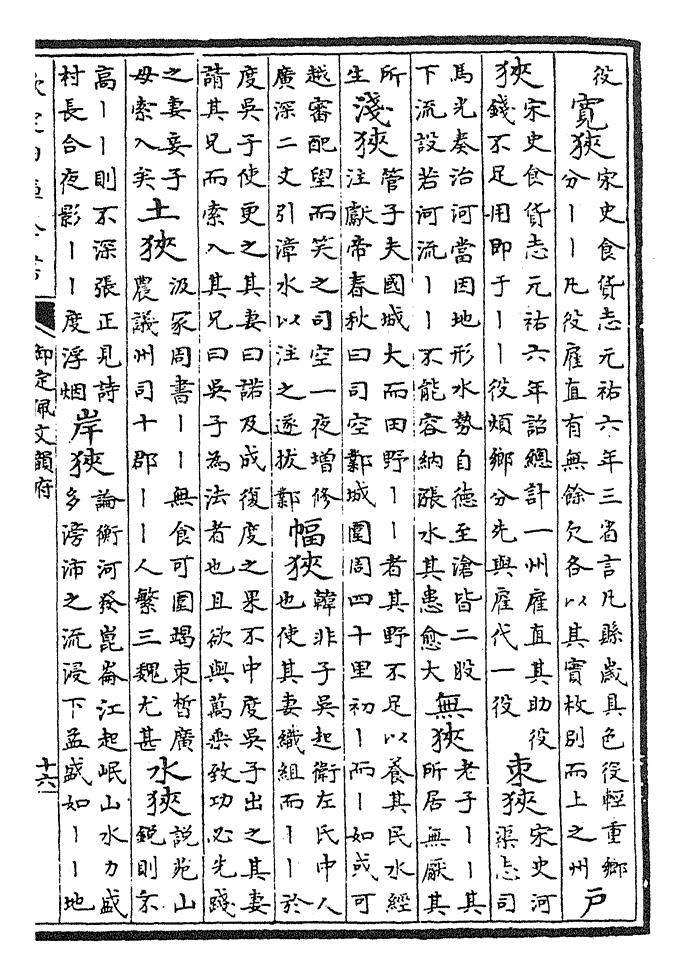 役
寬狹
宋史食貨志元祐六年三省言凡縣歲具色役輕重鄉
分丨丨凡役雇直有無餘欠各以其實枚別而上之州
戸狹
宋史食貨志元祐六年詔總計一州雇直其助役
錢不足用即于丨丨役煩鄉分先與雇代一役
束狹
宋史河
渠志司
馬光奏治河當因地形水勢自德至滄皆二股
下流設若河流丨丨不能容納漲水其患愈大
無狹
老子丨丨其
所居無厭其
所
生
淺狹
管子夫國城大而田野丨丨者其野不足以養其民水經
注獻帝春秋曰司空鄴城圍周四十里初丨而丨如或可
越審配望而笑之司空一夜增修
廣深二丈引漳水以注之遂拔鄴
幅狹
韓非子吳起衛左氏中人
也使其妻織組而丨丨於
度吳子使更之其妻曰諾及成復度之果不中度吳子出之其妻
請其兄而索入其兄曰吳子為法者也且欲與萬乘致功必先踐
之妻妾子
毋索入矣
土狹
汲冢周書丨丨無食可圍竭束晳廣
農議州司十郡丨丨人繁三魏尤甚
水狹
說苑山
銳則不
高丨丨則不深張正見詩
村長合夜影丨丨度浮烟
岸狹
論衡河發崑崙江起岷山水力盛
多滂沛之流浸下益盛如丨丨地
欽定四庫全書
御定佩文韻府
十六